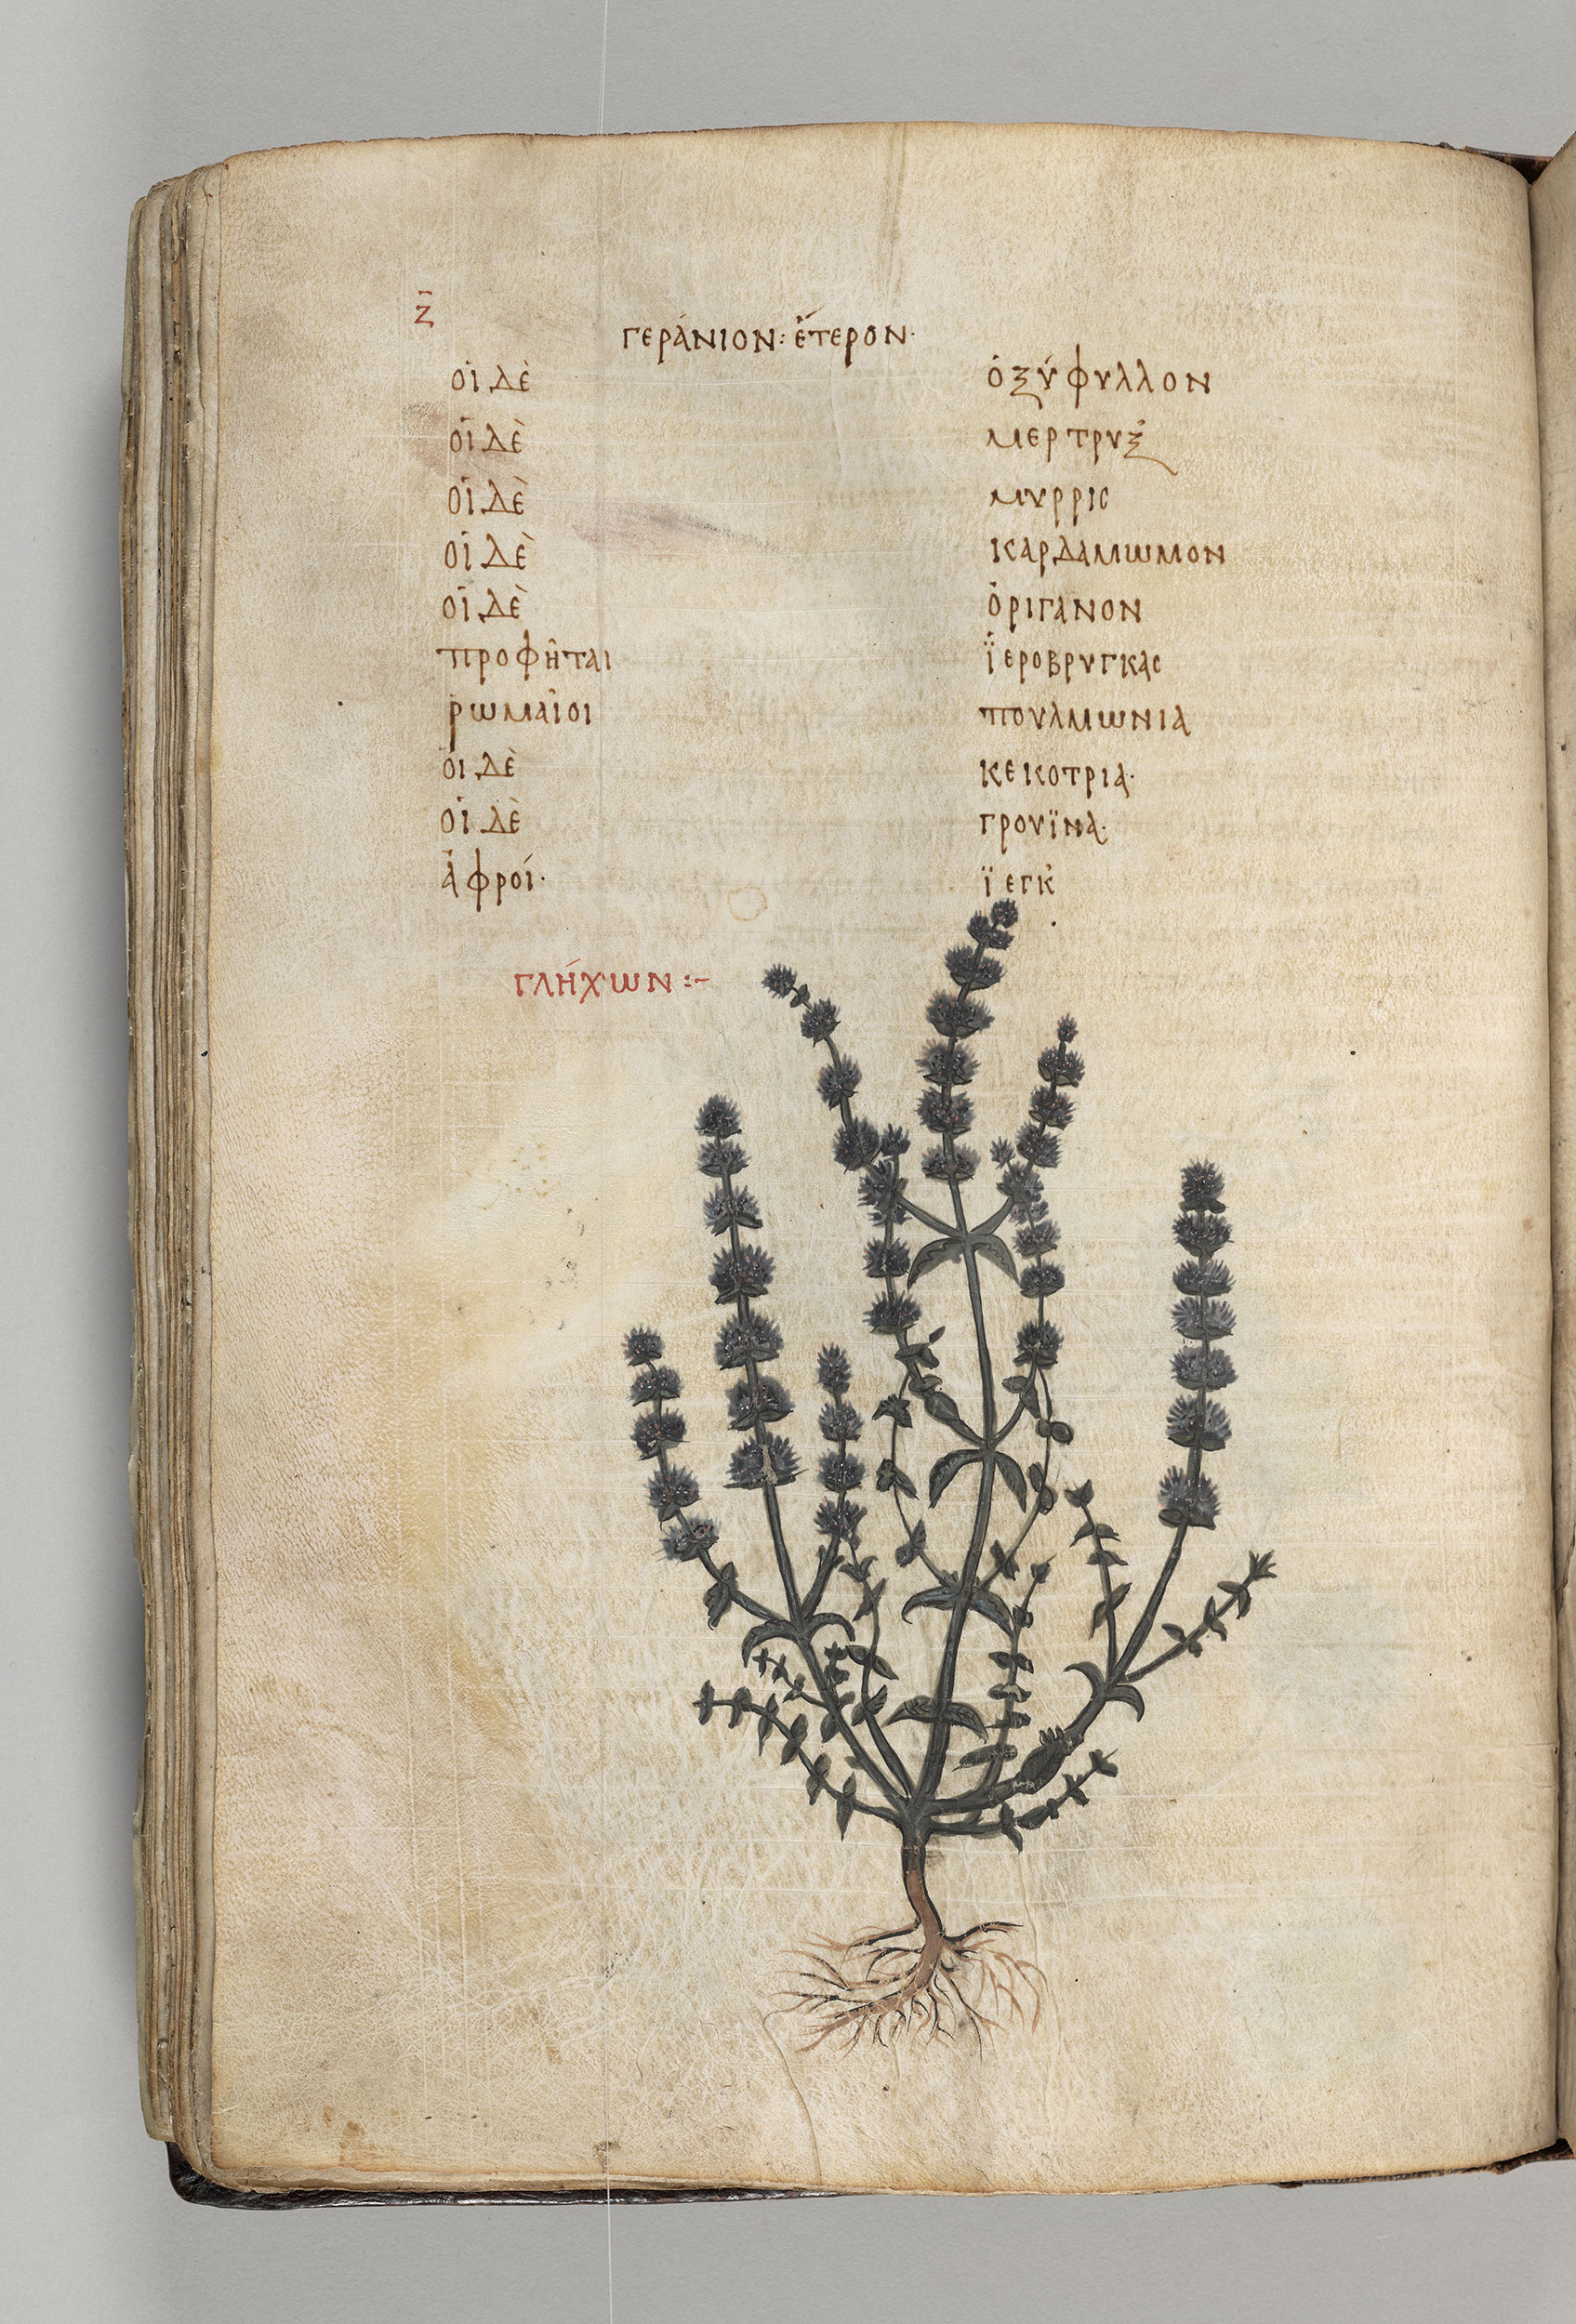 ζ̄
γεράνιον: ἕτερον·
οἱ δὲ ὀξύφυλλον
οἱ δὲ μερτρυξ
οἱ δὲ μυρρις
οἱ δὲ καρδαμωμον
οἱ δὲ ὀριγανον
προφῆται ἱεροβρυγκας
ρωμαῖοι πουλμωνια
οἱ δὲ κεκοτρια·
οἱ δὲ γρουϊνα·
ἀφροί· ϊεγκ
γλήχων :-